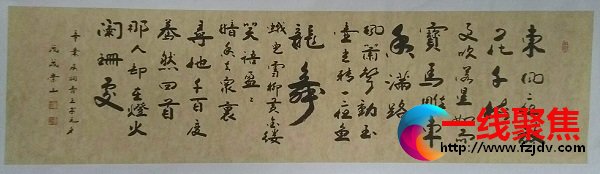 東風夜放
花千樹
更吹落星如雨
寶馬雕車
香滿路
鳳簫聲動玉
壺光轉一夜魚
龍舞
蛾兒雪柳黃金縷
笑語盈〻
暗香去衆裏
尋他千百度
驀然回首
那人却在燈火
闌珊處
辛棄疾詞青玉案元夕
一线聚焦
http://www.fzjdv.com